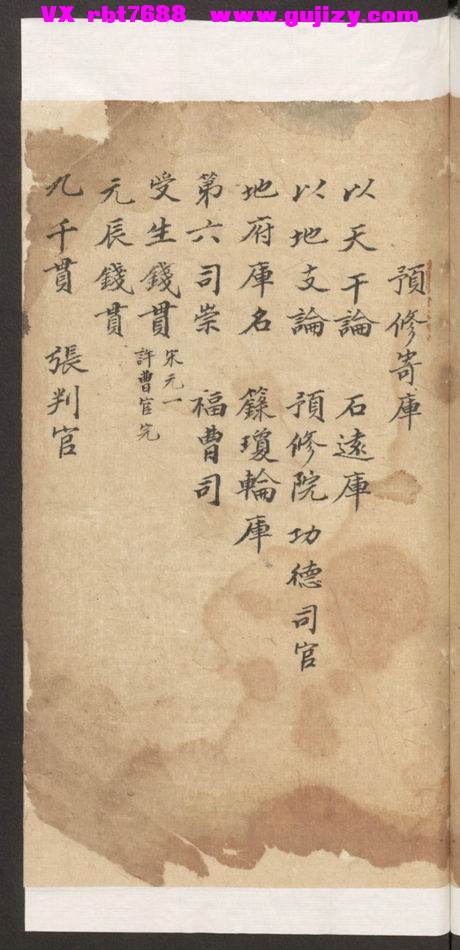 VX rbt7688 www.gujizy.com
預修寄庫
以天干論 石遠庫
以地支論 預修院功德司官
地府庫名 籙瓊輪庫
第六司崇 福曹司
受生錢貫 宋元一
許曹官完
元辰錢貫
九千貫 張判官